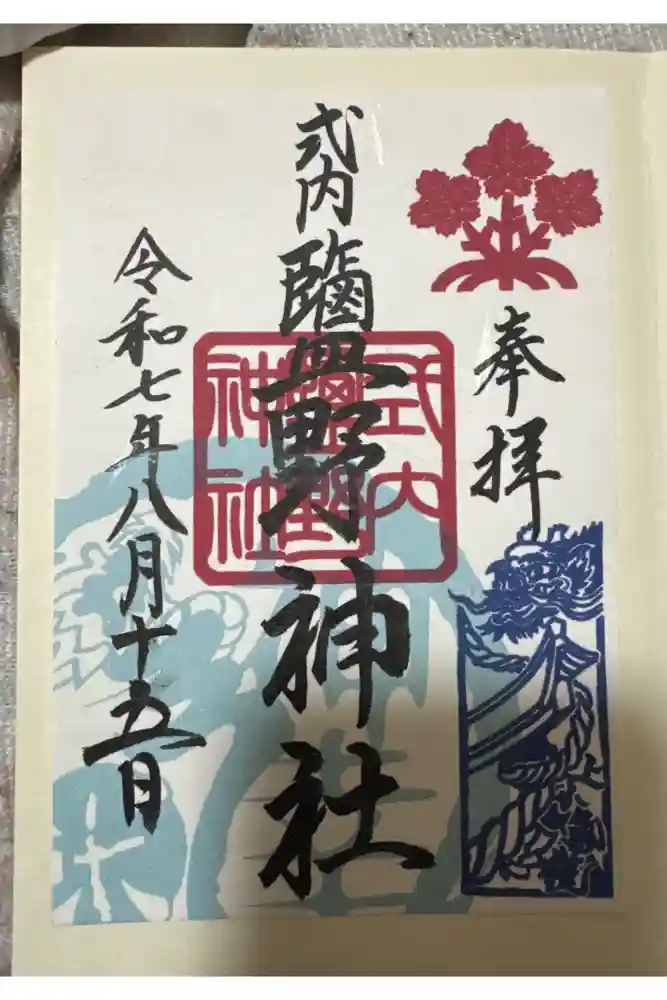 奉拝
式内鹽野神社
式内
鹽野
神社
令和七年八月十五日